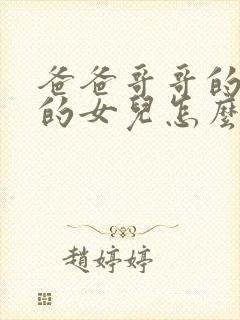 爸爸哥哥的
的女兒怎麼
趙婷婷